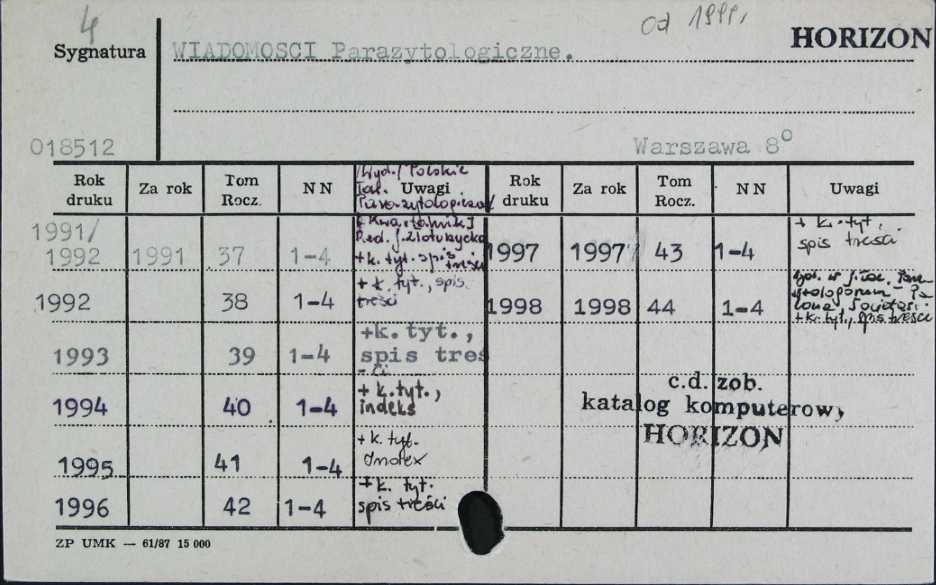 4 od 1999r. HORIZON
Sygnatura WIADOMOSCI Parazytologiczne.
018512 Warszawa 8°
Rok druku Za rok Tom Rocz. NN Uwagi Rok druku Za rok Tom Rocz. NN Uwagi
/Wyd./ Polskie Tow. Parazytologiczne/
[Kwartalnik]
1991/1992 1991 37 1-4 + k. tyt. spis treści 1997 1997 43 1-4 + k. tyt. spis treści
1992 38 1-4 + k. tyt., spis. treści 1998 1998 44 1-4 + k. tyt., spis treści
1993 39 1-4 +k. tyt., spis treści
1994 40 1-4 + k. tyt., indeks
1995 41 1-4 + k. tyt.
1996 42 1-4 + k. tyt. spis treści
c.d. zob.
katalog komputerowy
HORIZON
ZP UMK — 61/87 15 000